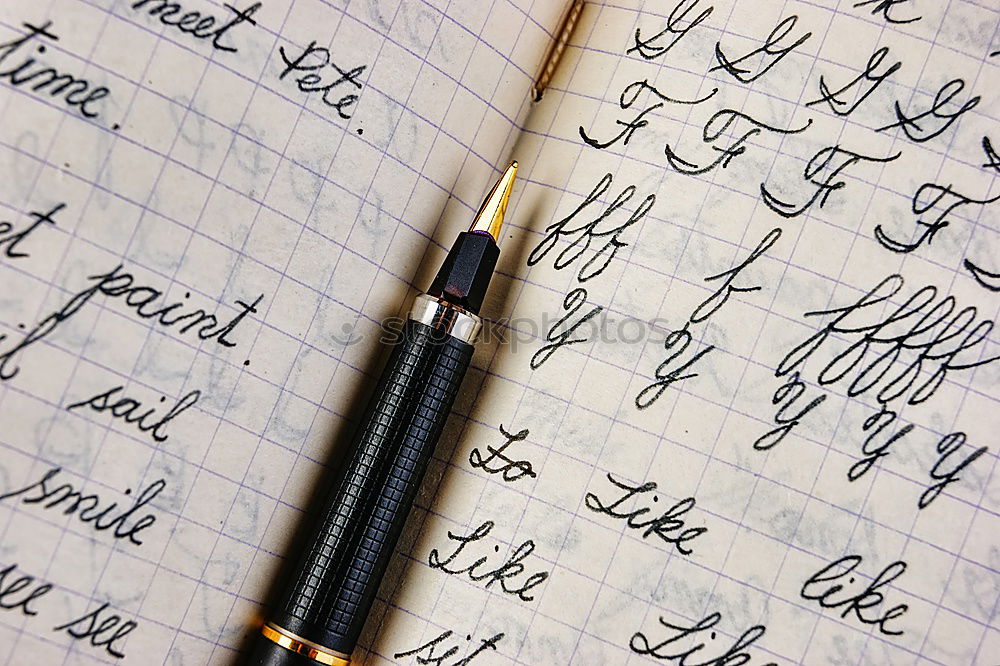 meet Pete.
time.
paint.
sail
smile
see see
G G G G
F F F F
fff f fffff
Y Y Y Y Y
Lo Like like
Like Like
sit
stockphotos